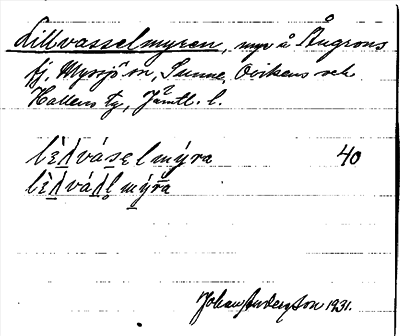 Lillvasselmyren, myr å Ångrons
fj. Myssjö sn, Sunne, Ovikens och
Hallens tg, Jämtl. l.
lèʌváselmýra 40
lèʌváʌl̥ mýra
Johan Anderzson 1931.